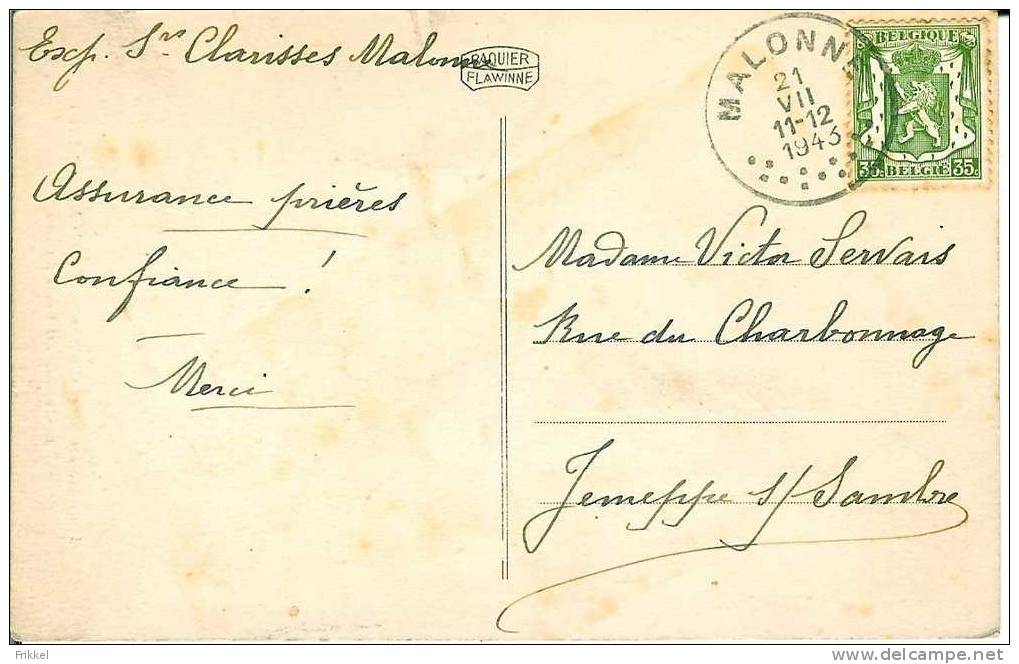 Exp. Srs Clarisses Malonne
PAQUIER
FLAWINNE
MALONNE
21
VII
11-12
1943
BELGIQUE
35c BELGIË 35c
Assurance prières
Confiance !
Merci
Madame Victor Servais
Rue du Charbonnage
Jemeppe s/ Sambre
Frikkel
www.delcampe.net